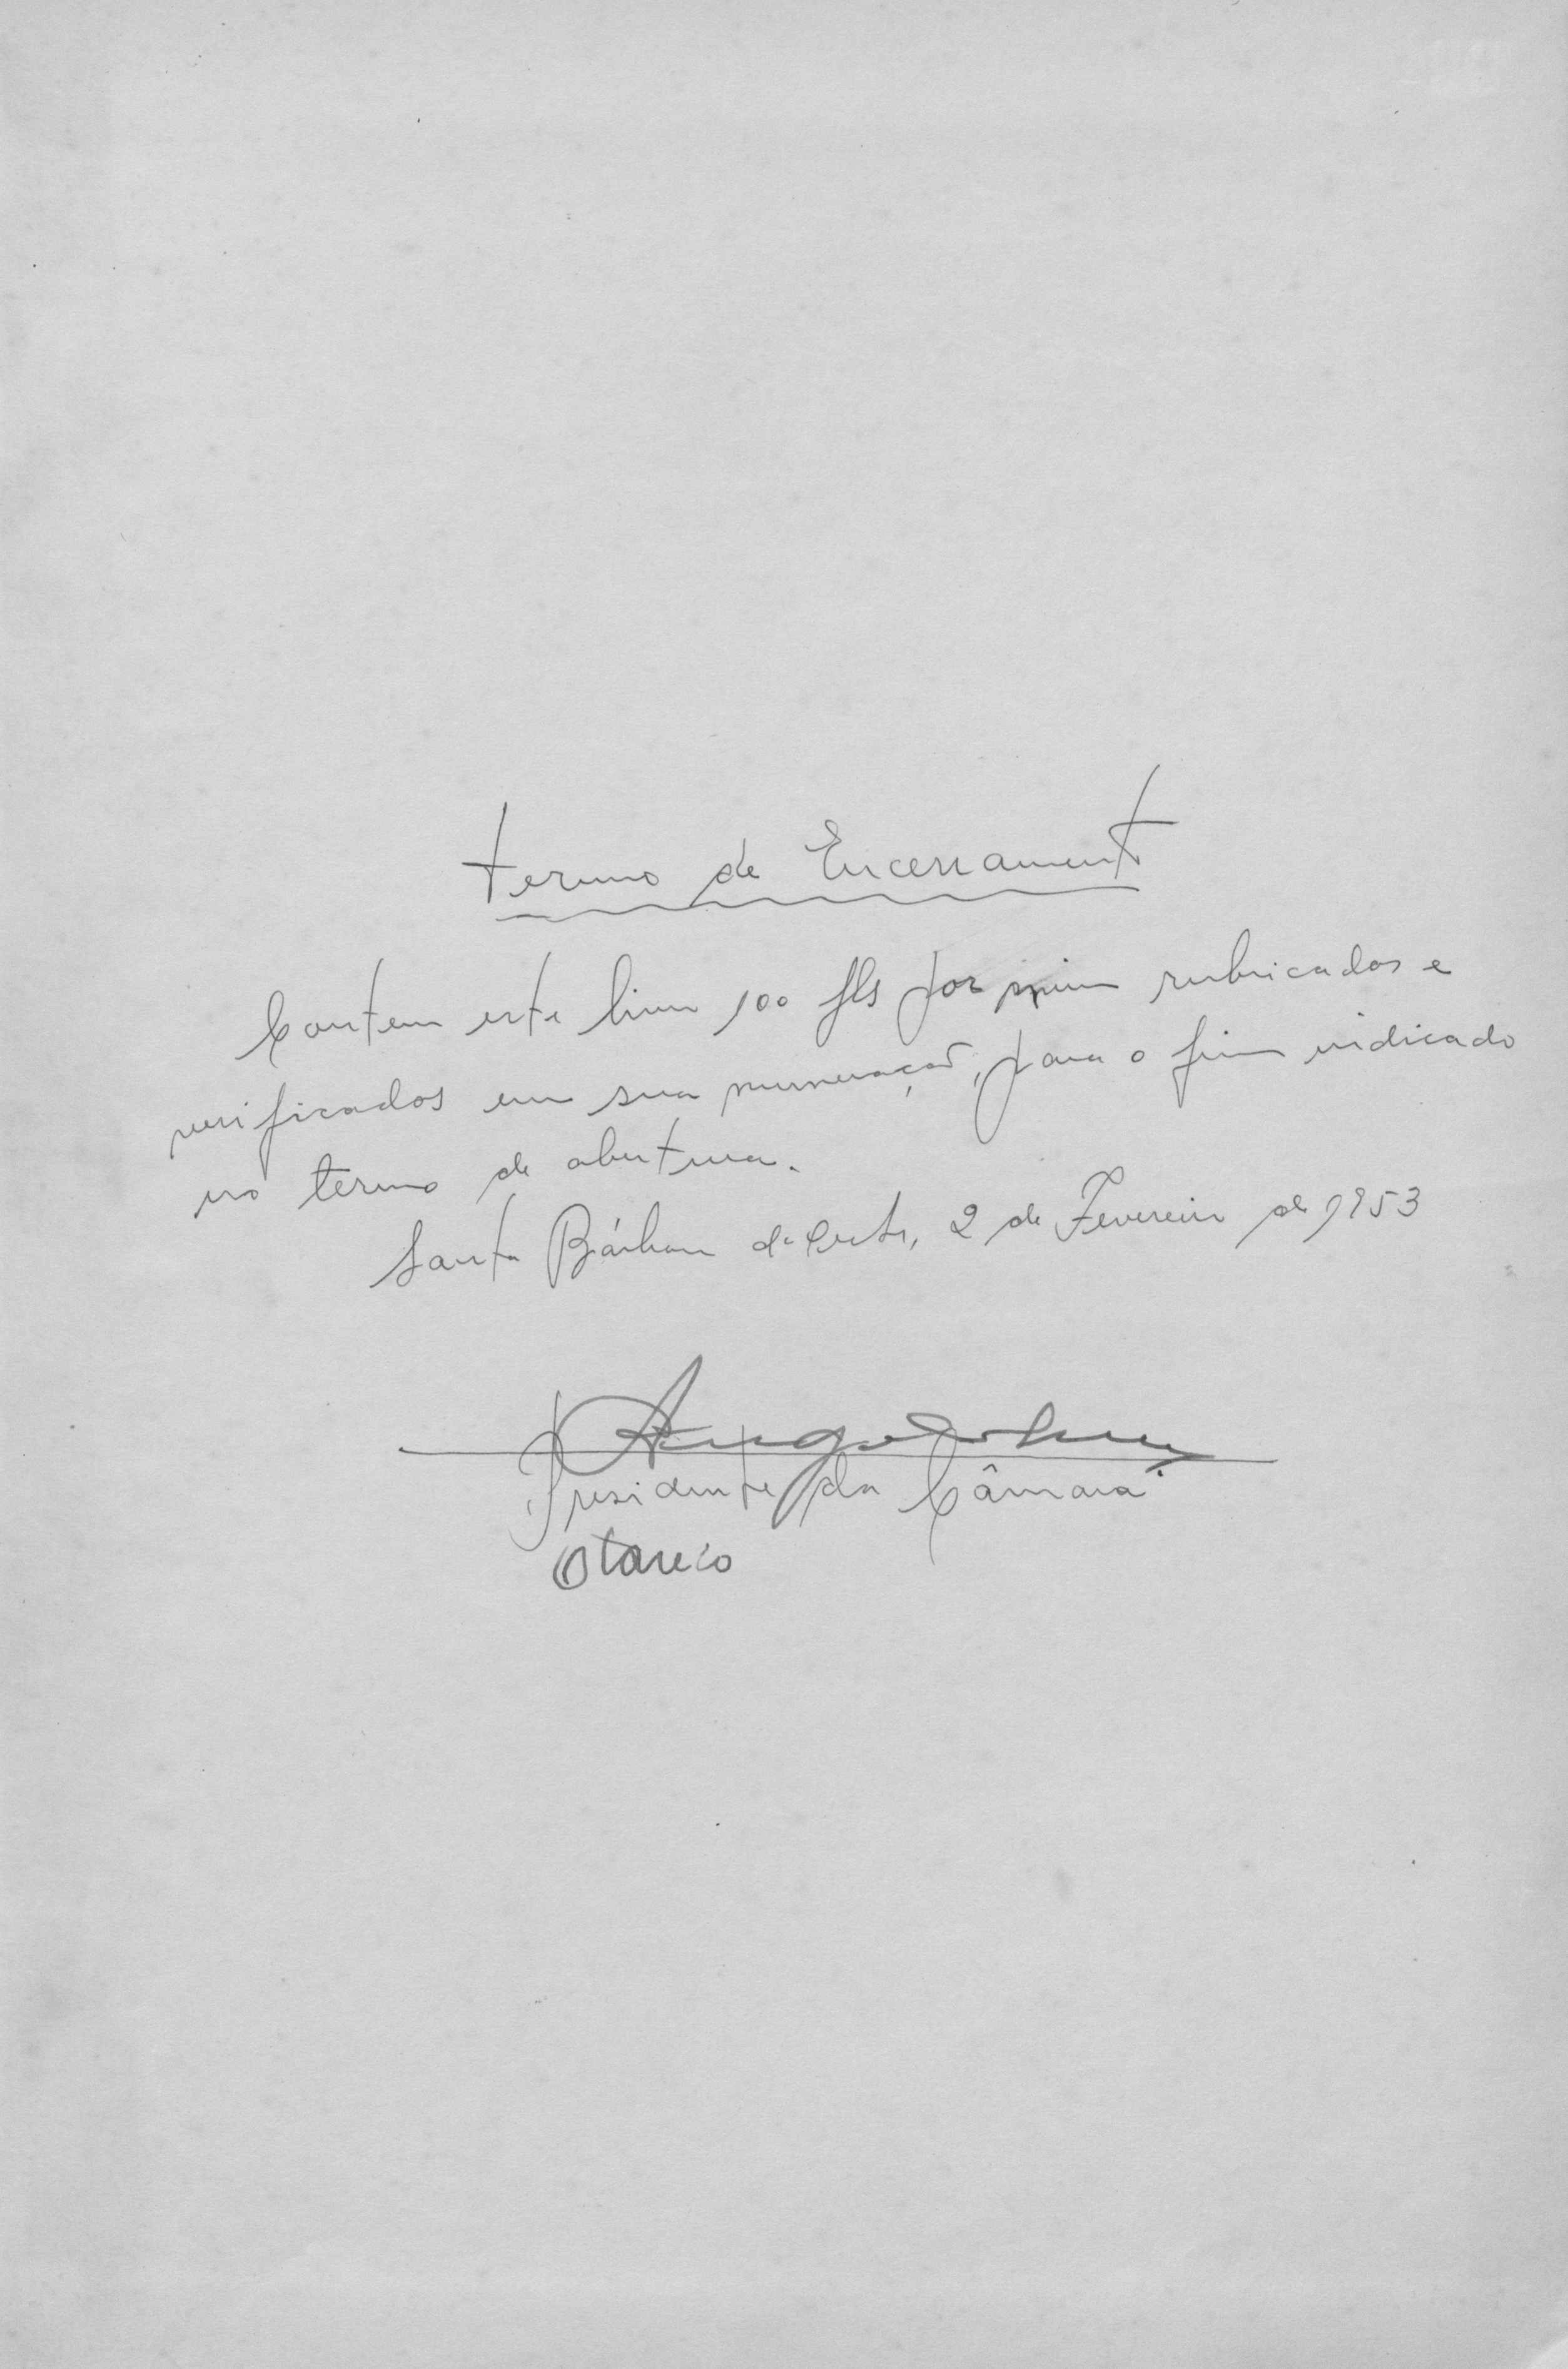 Termo de Encerramento
Contem este livro 100 fls por mim rubricados e
verificados em sua numeração, para o fim indicado
no termo de abertura.
Santa Bárbara d'Oeste, 2 de Fevereiro de 1953
Presidente da Câmara